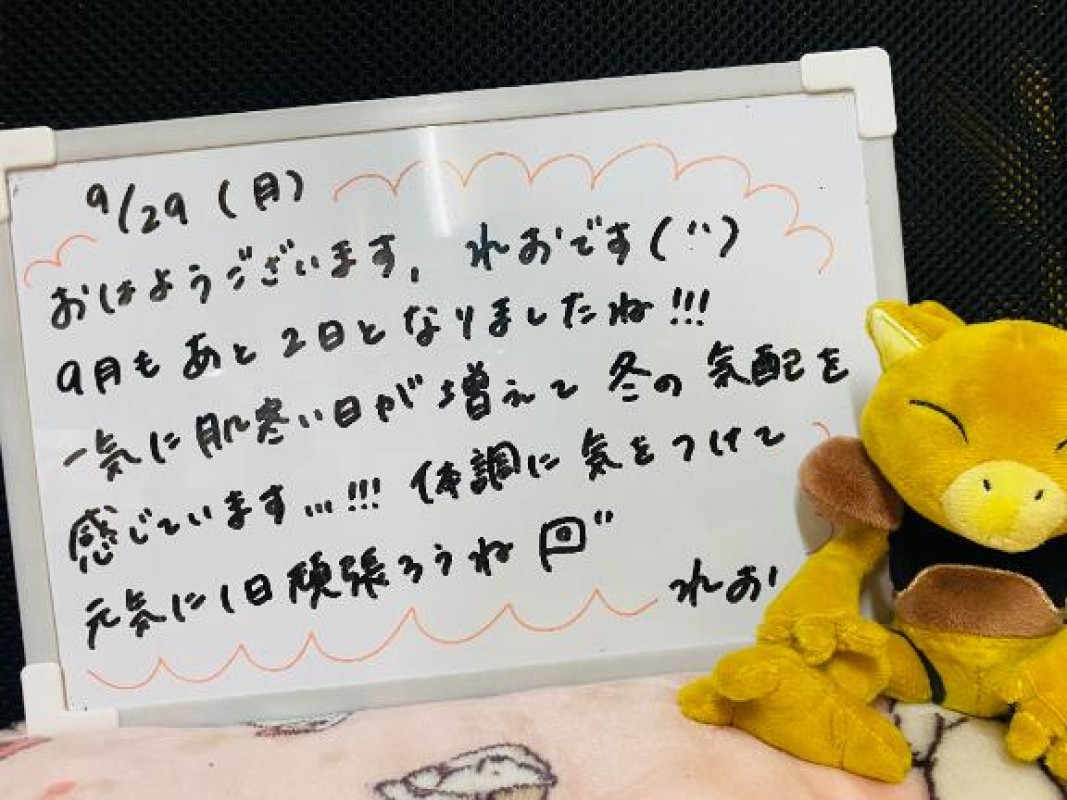 9/29(月)
おはようございます、れおです(¨)
9月もあと2日となりましたね!!!
一気に肌寒い日が増えて冬の気配を
感じています...!!! 体調に気をつけて
元気に1日頑張ろうね
れお